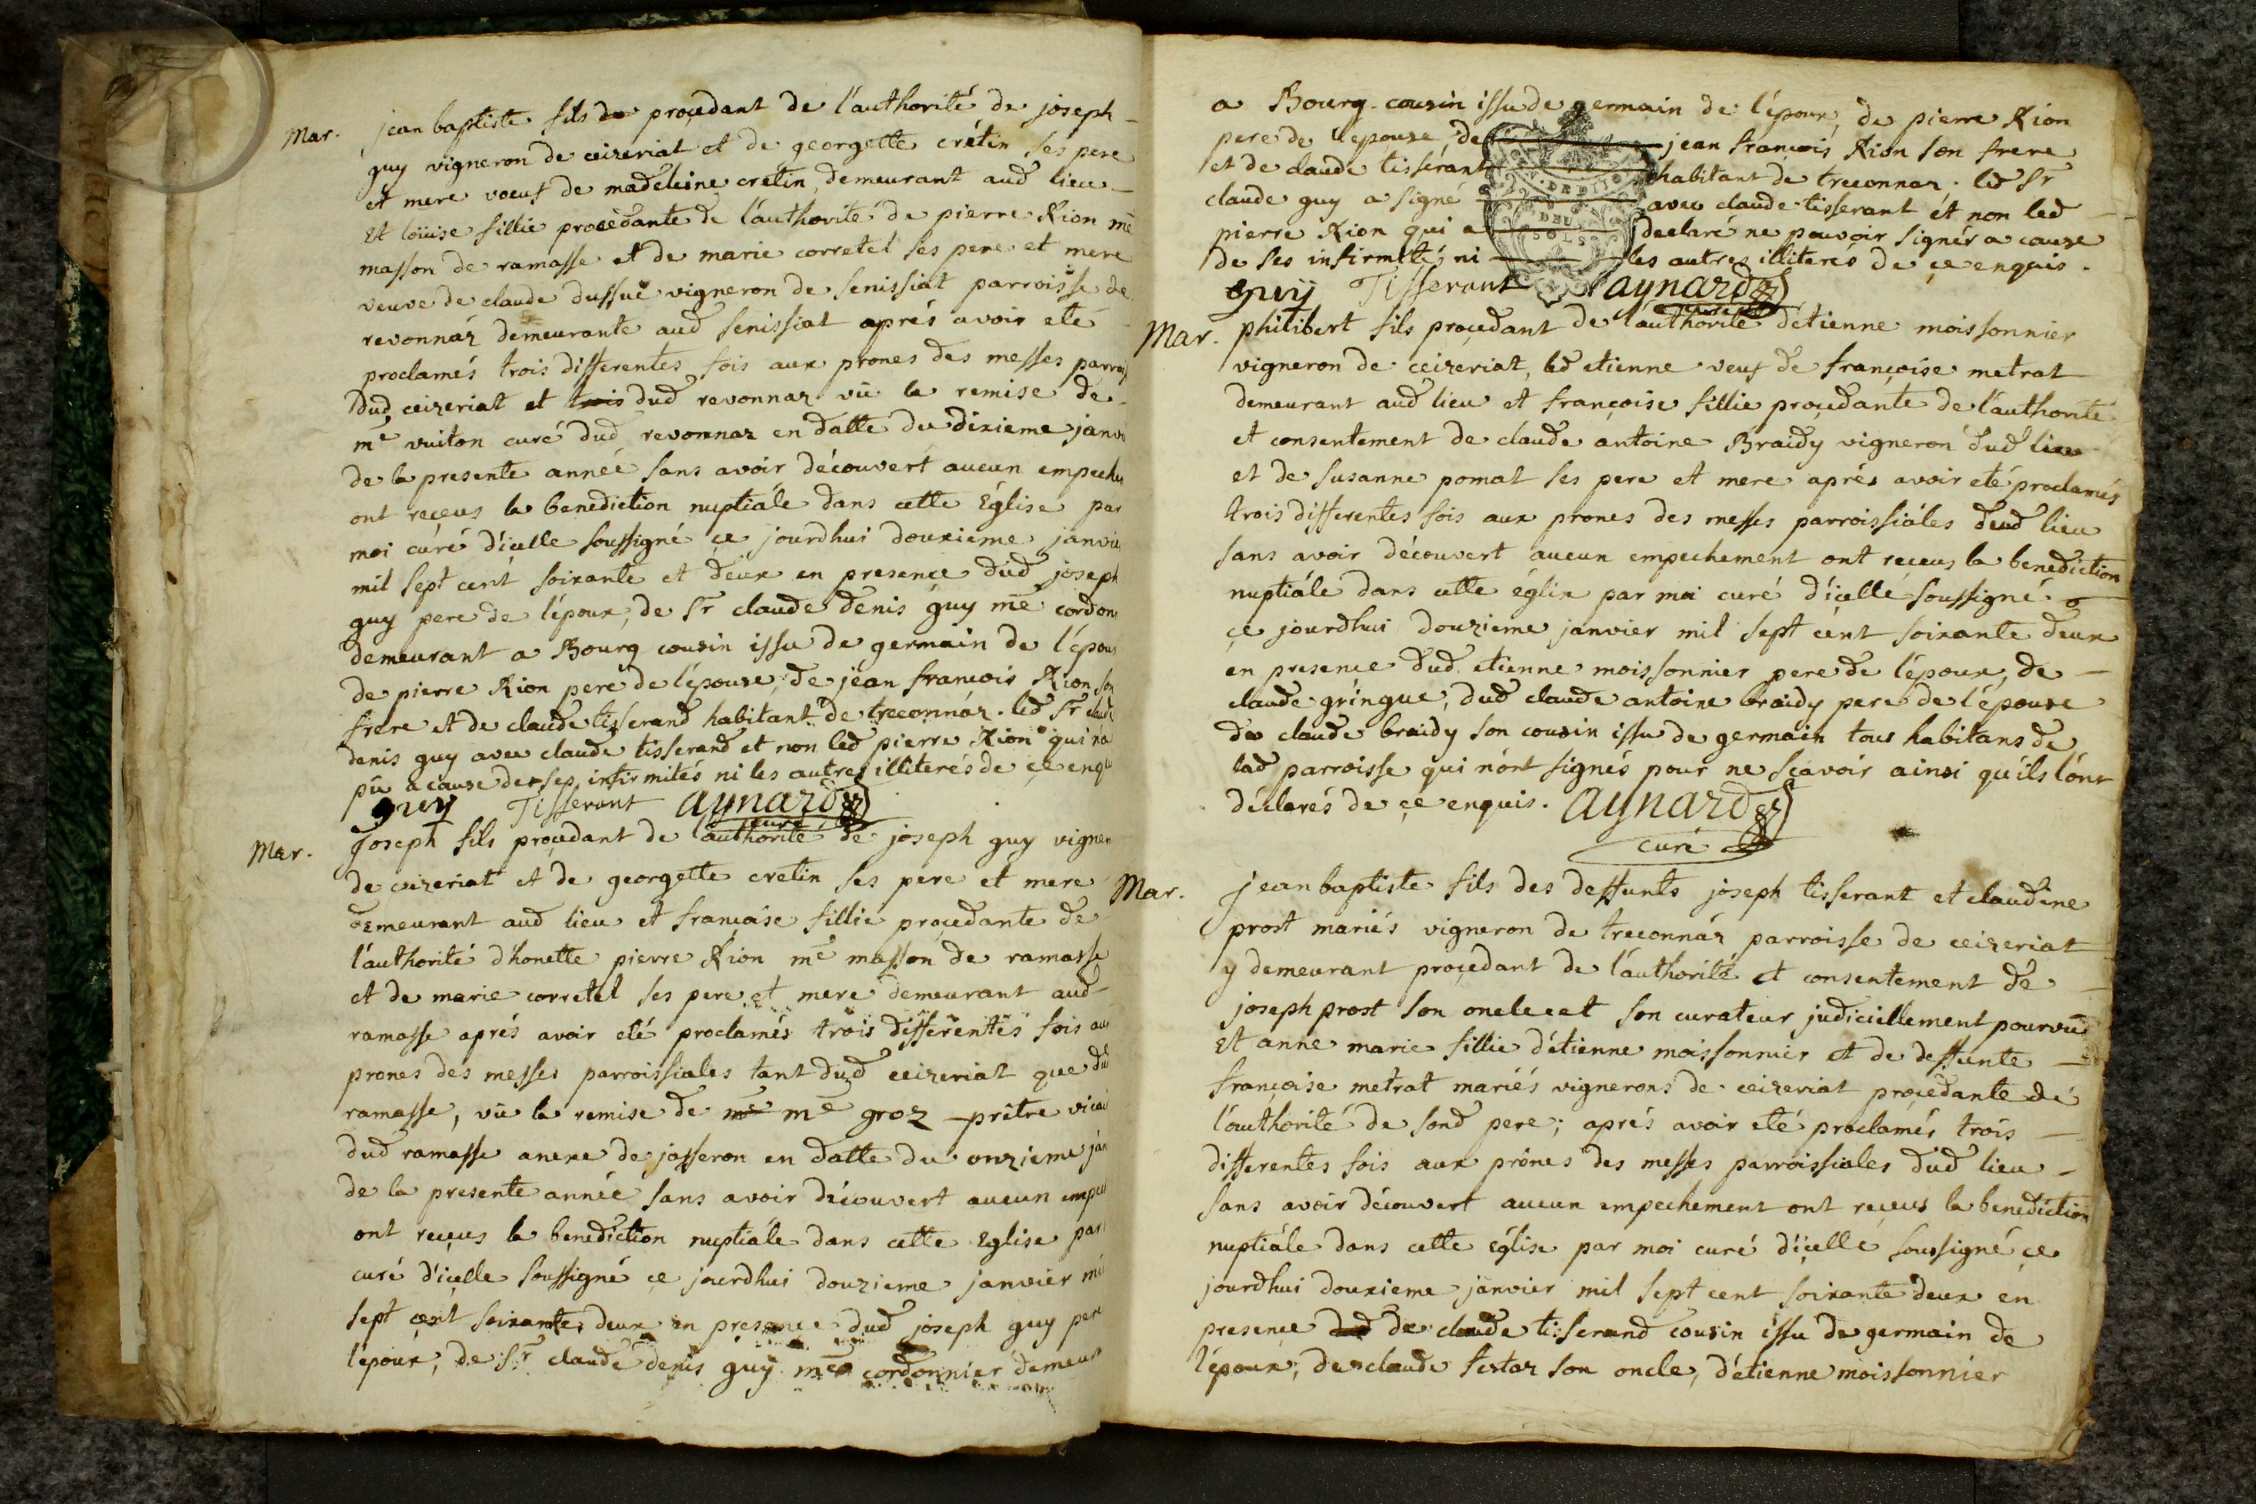 Mar.
jean baptiste fils de procedant de l'authorité de joseph
guy vigneron de ceizeriat et de georgette crétin ses pere
et mere voeuf de madeleine crétin, demeurant aud lieu
Et loüise fillie procédante de l'authorité de pierre Rion me
masson de ramasse et de marie corretel ses pere et mere
veuve de claude dussuc vigneron de senissiat parroisse de
revonnáz demeurante aud senissiat aprés avoir eté
proclamés trois differentes fois aux prones des messes parrois
Dud ceizeriat et trois dud revonnaz vû la remise de
me vuiton curé dud revonnaz en datte du dixieme janvi
de la presente année sans avoir découvert aucun empeche
ont reçeus la benediction nuptiále dans cette Eglise par
moi curé d'icelle soussigné ce jourdhui douxieme janvie
mil sept cent soixante et deux en presence dud joseph
guy pere de l'époux, de Sr claude denis guy me cordon
demeurant a Bourg cousin issu de germain de l'épous
de pierre Rion pere de l'épouse, de jean francois Rion son
frere et de claude tisserand habitant de treconnáz. led Sr claude
denis guy avec claude tisserand et non led pierre Rion qui na
pû a cause de ses infirmités ni les autres illiterés de ce enqu
guy Tisserant aynard
curé
Mar.
Joseph fils procedant de l'authorité de joseph guy vigner
de ceizeriat et de georgette cretin ses pere et mere
demeurant aud lieu et francoise fillie procedante de
l'authorité d'honette pierre Rion me masson de ramasse
et de marie corretel ses pere et mere demeurant aud
ramasse aprés avoir eté proclamés trois differentes fois au
prones des messes parroissiales tant dud ceizeriat que dud
ramasse, vû la remise de me me groz prêtre vicai
dud ramasse anexe de jasseron en datte du onzieme jan
de la presente année sans avoir découvert aucun empe
ont reçeus la benediction nuptiále dans cette Eglise par
curé d'icelle soussigné ce jourdhui douzieme janvier mil
sept cent soixante deux en presence dud joseph guy pere
l'époux, de Sr claude denis guy me cordonnier demeur
a Bourg cousin issu de germain de l'époux, de pierre Rion
pere de l'epouse de jean francois Rion son frere
et de claude tisserant habitant de treconnaz. led Sr
claude guy a signé avec claude tisserant et non led
pierre Rion qui a declaré ne pouvoir signér a cause
de ses infirmité, ni les autres illiteres de ce enquis.
DEUX
SOLS
guy Tisserant aynard
curé
Mar.
philibert fils procedant de l'authorité detienne moissonnier
vigneron de ceizeriat, led etienne veuf de françoise metrat
demeurant aud lieu et françoise fillie procedante de l'authorité
et consentement de claude antoine Braidy vigneron dud lieu
et de susanne pomat ses pere et mere aprés avoir eté proclamés
trois differentes fois aux prones des messes parroissiáles dud lieu
sans avoir découvert aucun empechement ont receus la benediction
nuptiále dans cette églix par moi curé d'icelle soussigné
ce jourdhui douzieme janvier mil sept cent soixante deux
en presence dud etienne moissonnier pere de l'époux, de
claude gringue, dud claude antoine braidy pere de l'épouse
de claude braidy son cousin issu de germain tous habitans de
lad parroisse qui n'ont signés pour ne sçavoir ainsi qu'ils l'ont
déclarés de ce enquis. aynard
curé
Mar.
jean baptiste fils des deffunts joseph tisserant et claudine
prost mariés vigneron de treconnáz parroisse de ceizeriat
y demeurant procedant de l'authorité et consentement de
joseph prost son oncle et son curateur judiciellement pourvû
Et anne marie fillie d'étienne moissonnier et de deffunte
françoise metrat mariés vignerons de ceizeriat procedante de
l'authorité de sond pere; aprés avoir eté proclamés trois
differentes fois aux prônes des messes parroissiales dud lieu
sans avoir découvert aucun empechement ont reçeus la benediction
nuptiále dans cette église par moi curé d'icelle soussigné ce
jourdhui douxieme janvier mil sept cent soixante deux en
presence dud de claude tisserand cousin issu de germain de
l'époux, de claude son oncle, d'étienne moissonnier